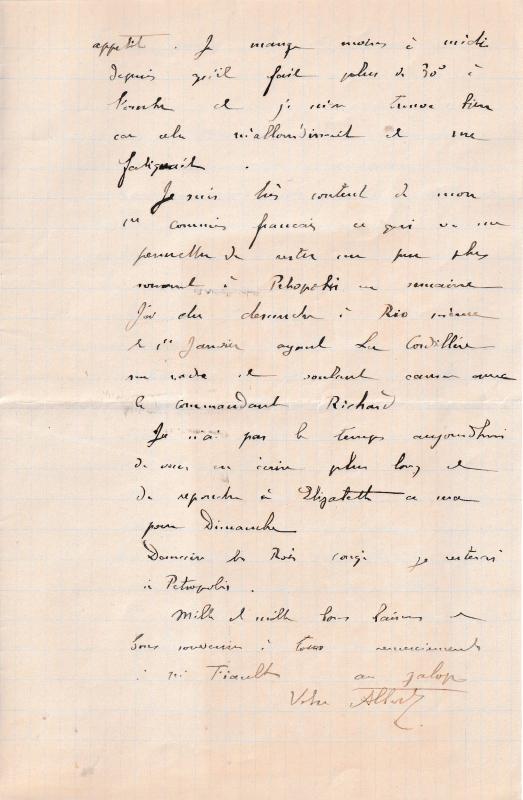 appetit. Je mange moins à midi
depuis qu'il fait plus de 30° à
l'ombre et je m'en trouve bien
car cela m'allourdissait et me
fatiguait.
Je suis très content de mon
1er commis français ce qui va me
permettre de rester un peu plus
souvent à Petropolis en semaine
J'ai du descendre à Rio même
le 1er Janvier ayant La Cordillère
sur rade et voulant causer avec
le commandant Richard
Je n'ai pas le temps aujourdhui
de vous en écrire plus long et
de repondre à Elizabeth ce sera
pour Dimanche
Demain les Rois congé je resterai
à Petropolis.
Mille et mille bons baisers et
bons souvenirs à tous remerciements
à au galop
Votre Albert